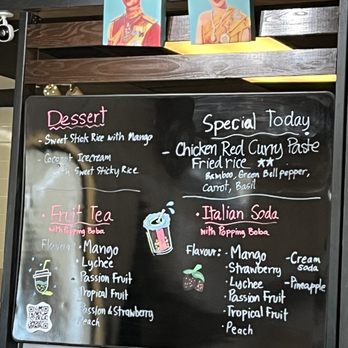 Dessert
- Sweet Stick Rice with Mango
- Coconut Icecream
with Sweet Sticky Rice
Special Today
- Chicken Red Curry Paste
Fried rice ★★
Bamboo, Green Bell pepper,
Carrot, Basil
• Fruit Tea
with Popping Boba
Flavour:
• Mango
• Lychee
• Passion Fruit
• Tropical Fruit
• Passion & Strawberry
• Peach
• Italian Soda
with Popping Boba
Flavour:
• Mango
• Strawberry
• Lychee
• Passion Fruit
• Tropical Fruit
• Peach
- Cream
soda
- Pineapple